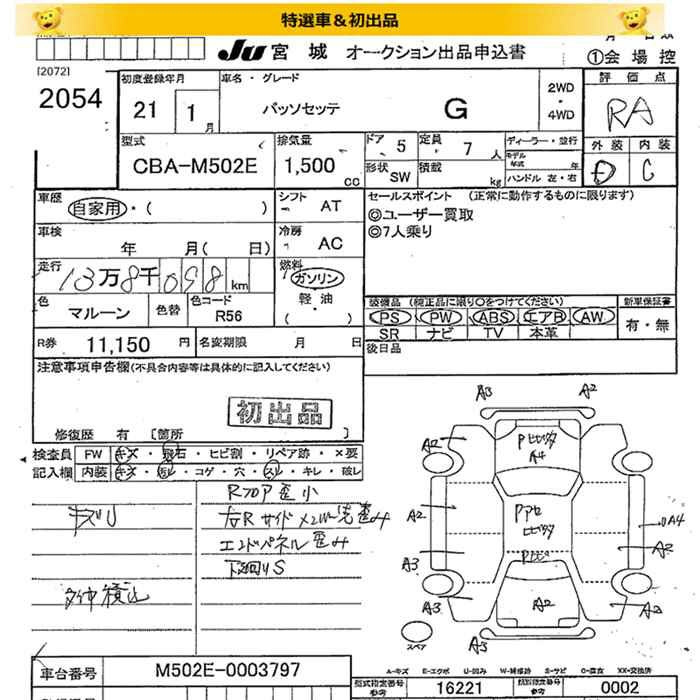 特選車＆初出品
JU 宮城 オークション出品申込書
①会場控
[2072]
2054
初度登録年月
21 1月
車名・グレード
パッソセッテ G
2WD・4WD
評価点
RA
型式
CBA-M502E
排気量
1,500cc
ドア 5
定員 7人
形状 SW
積載 kg
ディーラー・並行
モデル年式 年
ハンドル 左・右
外装 内装
D C
車歴
自家用・( )
シフト AT
セールスポイント (正常に動作するものに限ります)
◎ユーザー買取
◎7人乗り
車検
年 月( 日)
冷房 AC
走行
13万8千098km
燃料
ガソリン・軽油・( )
色
マルーン
色替
色コード
R56
装備品 (純正品に限り○をつけてください)
PS PW ABS エアB AW
SR ナビ TV 本革
新車保証書
有・無
R券 11,150円
名変期限 月 日
後日品
注意事項申告欄(不具合内容等は具体的に記入してください)
初出品
修復歴 有 [箇所 ]
検査員記入欄
FW キズ・飛石・ヒビ割・リペア跡・×要
内装 キズ・汚レ・コゲ・穴・スレ・キレ・破レ
キズU
タイヤ積込
Rフロア歪小
右Rサイドメンバー先歪み
エンドパネル歪み
下廻りS
A3 A2
A2 PヒビワA A4
A2 A3 A3
Pアセ
A4 A2 A2
A2
A5
スペア
A-キズ E-エクボ U-凹み W-補修跡 S-サビ C-腐食 XX-交換済
車台番号 M502E-0003797
型式指定番号 参考 16221
類別区分番号 参考 0002